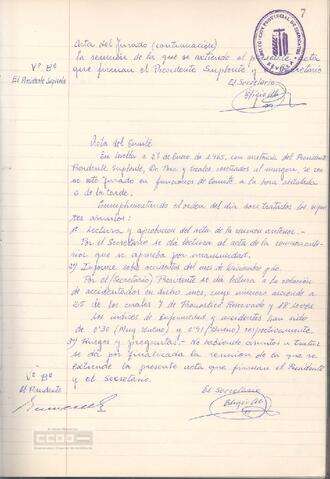 7
Acta del Jurado (continuación)
la reunión de la que se extiende el presente acta
que firman el Presidente Suplente y Secretario
Vº Bº
El Presidente Suplente
El Secretario
Acta del Comité
En Sevilla a 27 de Enero de 1965, con asistencia del Presidente
Presidente Suplente, Dr. y Vocales reseñados al margen, se reu
ne este Jurado en funciones de Comité a la hora señalada
de la tarde.
Cumplimentando el orden del día son tratados los siguien
asuntos:
Lectura y aprobación del acta de la reunión anterior.-
Por el Secretario se dá lectura al acta de la reunión ante
rior que se aprueba por unanimidad.
2) Informe sobre accidentes del mes de Diciembre pdo.
Por el (Secretario) Presidente se dá lectura a la relación
de accidentados en dicho mes, cuyo número asciende a
25 de los cuales 7 de Pronóstico Reservado y 18 leves.
Los índices de Enfermedad y accidentes han sido
de 0'30 (Muy bueno) y 0'91 (Bueno) respectivamente.
3) Ruegos y preguntas.- No habiendo asuntos a tratar
se dá por finalizada la reunión de la que se
extiende la presente acta que firman el Presidente
y el Secretario.
Vº Bº
El Presidente
El Secretario
CCOO